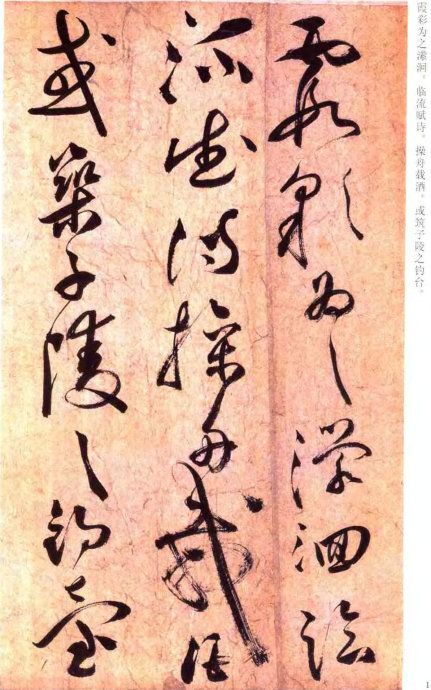 霞彩為之瀠洄臨
流賦詩操舟載酒
或築子陵之釣臺
霞彩为之潆洄。临流赋诗。操舟载酒。或筑子陵之钓台。
1